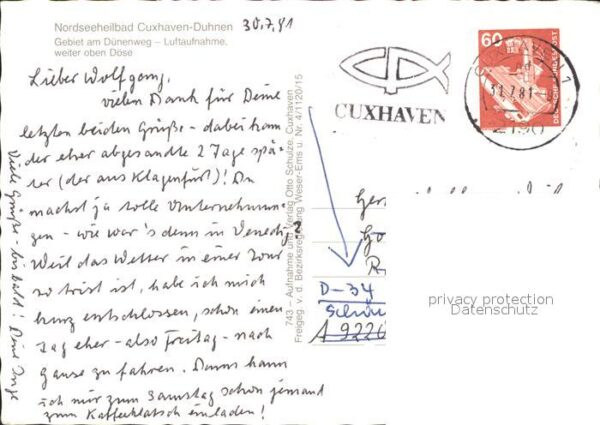 Nordseeheilbad Cuxhaven-Duhnen
30.7.81
Gebiet am Dünenweg – Luftaufnahme,
weiter oben Döse
Lieber Wolfgang,
vielen Dank für Deine
letzten beiden Grüße – dabei kam
der eher abgesandte 2 Tage spä-
ter (der aus Klagenfurt)! Du
machst ja tolle Unternehmun-
gen – wie war's denn in Venedig?
Weil das Wetter in einer Tour
so trist ist, habe ich mich
kurz entschlossen, schon einen
Tag eher – also Freitag – nach
Hause zu fahren. Dann kann
ich mir zum Samstag schon jemand
zum Kaffeeklatsch einladen!
Viele Grüße – bis bald! Deine Inge
743 – Aufnahme und Verlag Otto Schulze, Cuxhaven
Freigeg. v. d. Bezirksregierung Weser-Ems u. Nr. 4/1120/15
CUXHAVEN
60
DEUTSCHE BUNDESPOST
CUXHAVEN 1
31.7.81
2190
D-34
A 9220
privacy protection
Datenschutz